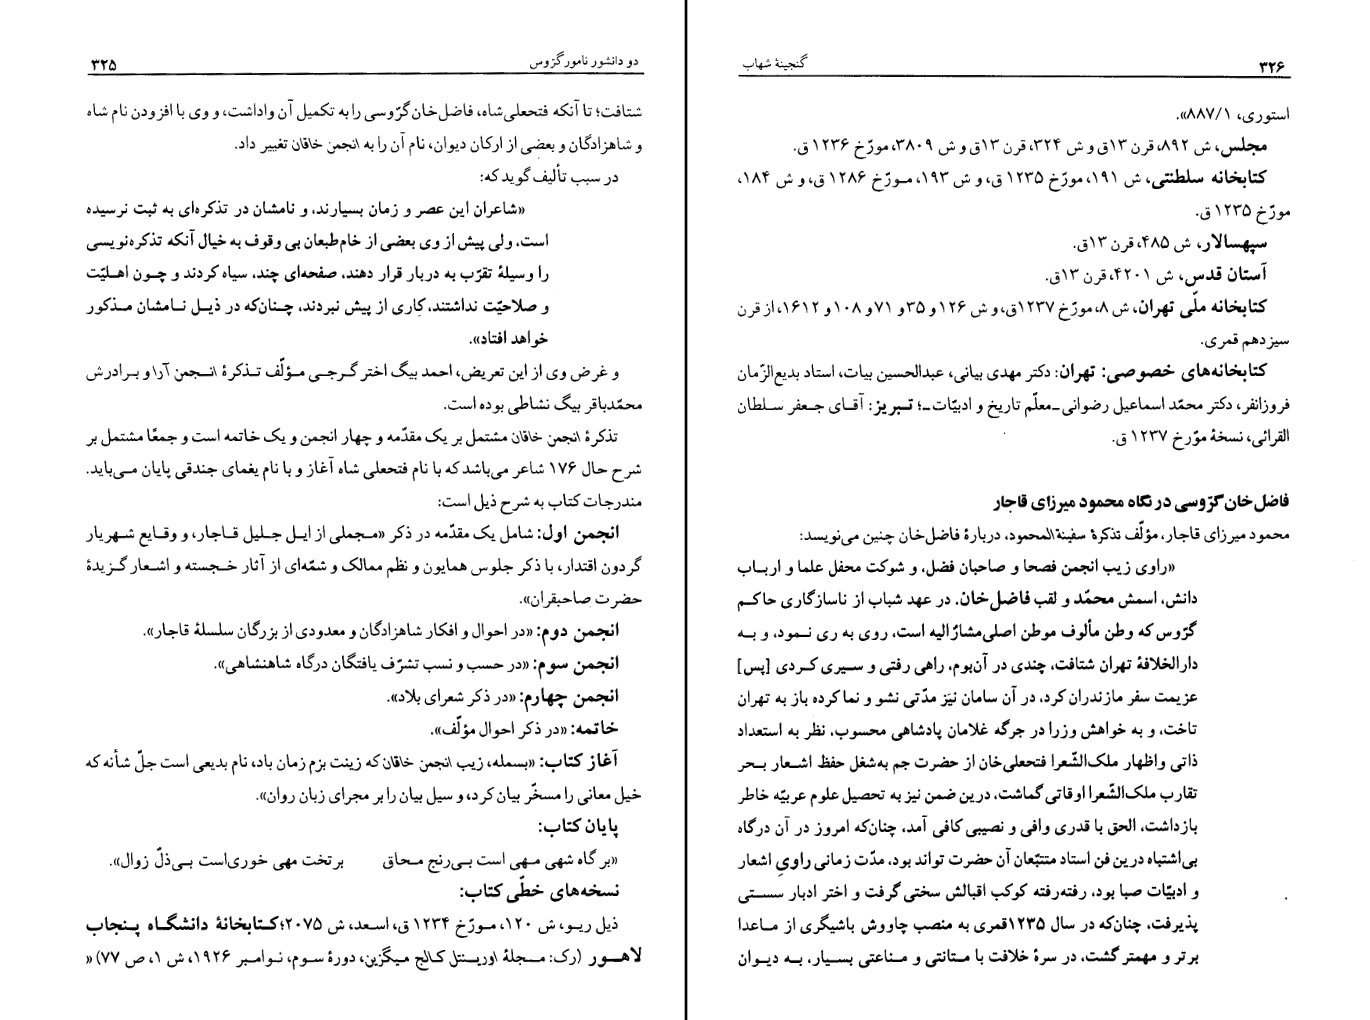 دو دانشور نامور گرّوس ۳۲۵
شتافت؛ تا آنکه فتحعلی‌شاه، فاضل‌خان گرّوسی را به تکمیل آن واداشت، و وی با افزودن نام شاه
و شاهزادگان و بعضی از ارکان دیوان، نام آن را به انجمن خاقان تغییر داد.
در سبب تألیف گوید که:
«شاعران این عصر و زمان بسیارند، و نامشان در تذکره‌ای به ثبت نرسیده
است، ولی پیش از وی بعضی از خام‌طبعان بی وقوف به خیال آنکه تذکره‌نویسی
را وسیلهٔ تقرّب به دربار قرار دهند، صفحه‌ای چند، سیاه کردند و چون اهلیّت
و صلاحیّت نداشتند، کاری از پیش نبردند، چنان‌که در ذیل نامشان مذکور
خواهد افتاد».
و غرض وی از این تعریض، احمد بیگ اختر گرجی مؤلّف تذکرهٔ انجمن آرا و برادرش
محمّدباقر بیگ نشاطی بوده است.
تذکرهٔ انجمن خاقان مشتمل بر یک مقدّمه و چهار انجمن و یک خاتمه است و جمعًا مشتمل بر
شرح حال ۱۷۶ شاعر می‌باشد که با نام فتحعلی شاه آغاز و با نام یغمای جندقی پایان می‌یابد.
مندرجات کتاب به شرح ذیل است:
انجمن اول: شامل یک مقدّمه در ذکر «مجملی از ایل جلیل قاجار، و وقایع شهریار
گردون اقتدار، با ذکر جلوس همایون و نظم ممالک و شمّه‌ای از آثار خجسته و اشعار گزیدهٔ
حضرت صاحبقران».
انجمن دوم: «در احوال و افکار شاهزادگان و معدودی از بزرگان سلسلهٔ قاجار».
انجمن سوم: «در حسب و نسب تشرّف یافتگان درگاه شاهنشاهی».
انجمن چهارم: «در ذکر شعرای بلاد».
خاتمه: «در ذکر احوال مؤلّف».
آغاز کتاب: «بسمله، زیب انجمن خاقان که زینت بزم زمان باد، نام بدیعی است جلّ شأنه که
خیل معانی را مسخّر بیان کرد، و سیل بیان را بر مجرای زبان روان».
پایان کتاب:
«بر گاه شهی مهی است بی‌رنج محاق برتخت مهی خوری‌است بی‌ذلّ زوال».
نسخه‌های خطّی کتاب:
ذیل ریو، ش ۱۲۰، مورّخ ۱۲۳۴ ق، اسعد، ش ۲۰۷۵؛ کتابخانهٔ دانشگاه پنجاب
لاهور (رک: مجلهٔ اورینتل کالج میگزین، دورهٔ سوم، نوامبر ۱۹۲۶، ش ۱، ص ۷۷) «
۳۲۶ گنجینهٔ شهاب
استوری، ۸۸۷/۱».
مجلس، ش ۸۹۲، قرن ۱۳ق و ش ۳۲۴، قرن ۱۳ق و ش ۳۸۰۹، مورّخ ۱۲۳۶ ق.
کتابخانه سلطنتی، ش ۱۹۱، مورّخ ۱۲۳۵ ق، و ش ۱۹۳، مورّخ ۱۲۸۶ ق، و ش ۱۸۴،
مورّخ ۱۲۳۵ ق.
سپهسالار، ش ۴۸۵، قرن ۱۳ق.
آستان قدس، ش ۴۲۰۱، قرن ۱۳ق.
کتابخانه ملّی تهران، ش ۸، مورّخ ۱۲۳۷ق، و ش ۱۲۶ و ۳۵ و ۷۱ و ۱۰۸ و ۱۶۱۲، از قرن
سیزدهم قمری.
کتابخانه‌های خصوصی: تهران: دکتر مهدی بیانی، عبدالحسین بیات، استاد بدیع‌الزّمان
فروزانفر، دکتر محمّد اسماعیل رضوانی ـ‌معلّم تاریخ و ادبیّات‌ـ؛ تبریز: آقای جعفر سلطان
القرائی، نسخهٔ مورّخ ۱۲۳۷ ق.
فاضل‌خان گرّوسی در نگاه محمود میرزای قاجار
محمود میرزای قاجار، مؤلّف تذکرهٔ سفینةالمحمود، دربارهٔ فاضل‌خان چنین می‌نویسد:
«راوی زیب انجمن فصحا و صاحبان فضل، و شوکت محفل علما و ارباب
دانش، اسمش محمّد و لقب فاضل‌خان. در عهد شباب از ناسازگاری حاکم
گرّوس که وطن مألوف موطن اصلی مشارٌالیه است، روی به ری نمود، و به
دارالخلافهٔ تهران شتافت، چندی در آن‌بوم، راهی رفتی و سیری کردی [پس]
عزیمت سفر مازندران کرد، در آن سامان نیز مدّتی نشو و نما کرده باز به تهران
تاخت، و به خواهش وزرا در جرگه غلامان پادشاهی محسوب، نظر به استعداد
ذاتی واظهار ملک‌الشّعرا فتحعلی‌خان از حضرت جم به‌شغل حفظ اشعار بحر
تقارب ملک‌الشّعرا اوقاتی گماشت، درین ضمن نیز به تحصیل علوم عربیّه خاطر
بازداشت، الحق با قدری وافی و نصیبی کافی آمد، چنان‌که امروز در آن درگاه
بی‌اشتباه درین فن استاد متتبّعان آن حضرت تواند بود، مدّت زمانی راویِ اشعار
و ادبیّات صبا بود، رفته‌رفته کوکب اقبالش سختی گرفت و اختر ادبار سستی
پذیرفت، چنان‌که در سال ۱۲۳۵قمری به منصب چاووش باشیگری از ماعدا
برتر و مهمتر گشت، در سرهٔ خلافت با متانتی و مناعتی بسیار، به دیوان